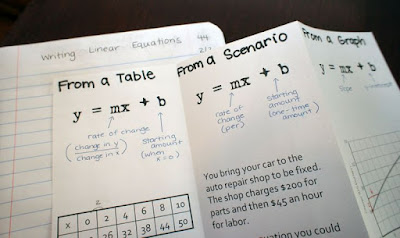 Writing Linear Equations
44
From a Table
y = mx + b
rate of change
(change in y / change in x)
starting amount
(when x=0)
x 0 2 4 6 8 10
26 32 38 44 50
From a Scenario
y = mx + b
rate of change
(per)
starting amount
(one-time amount)
You bring your car to the
auto repair shop to be fixed.
The shop charges $200 for
parts and then $45 an hour
for labor.
equation you could
From a Graph
y = mx + b